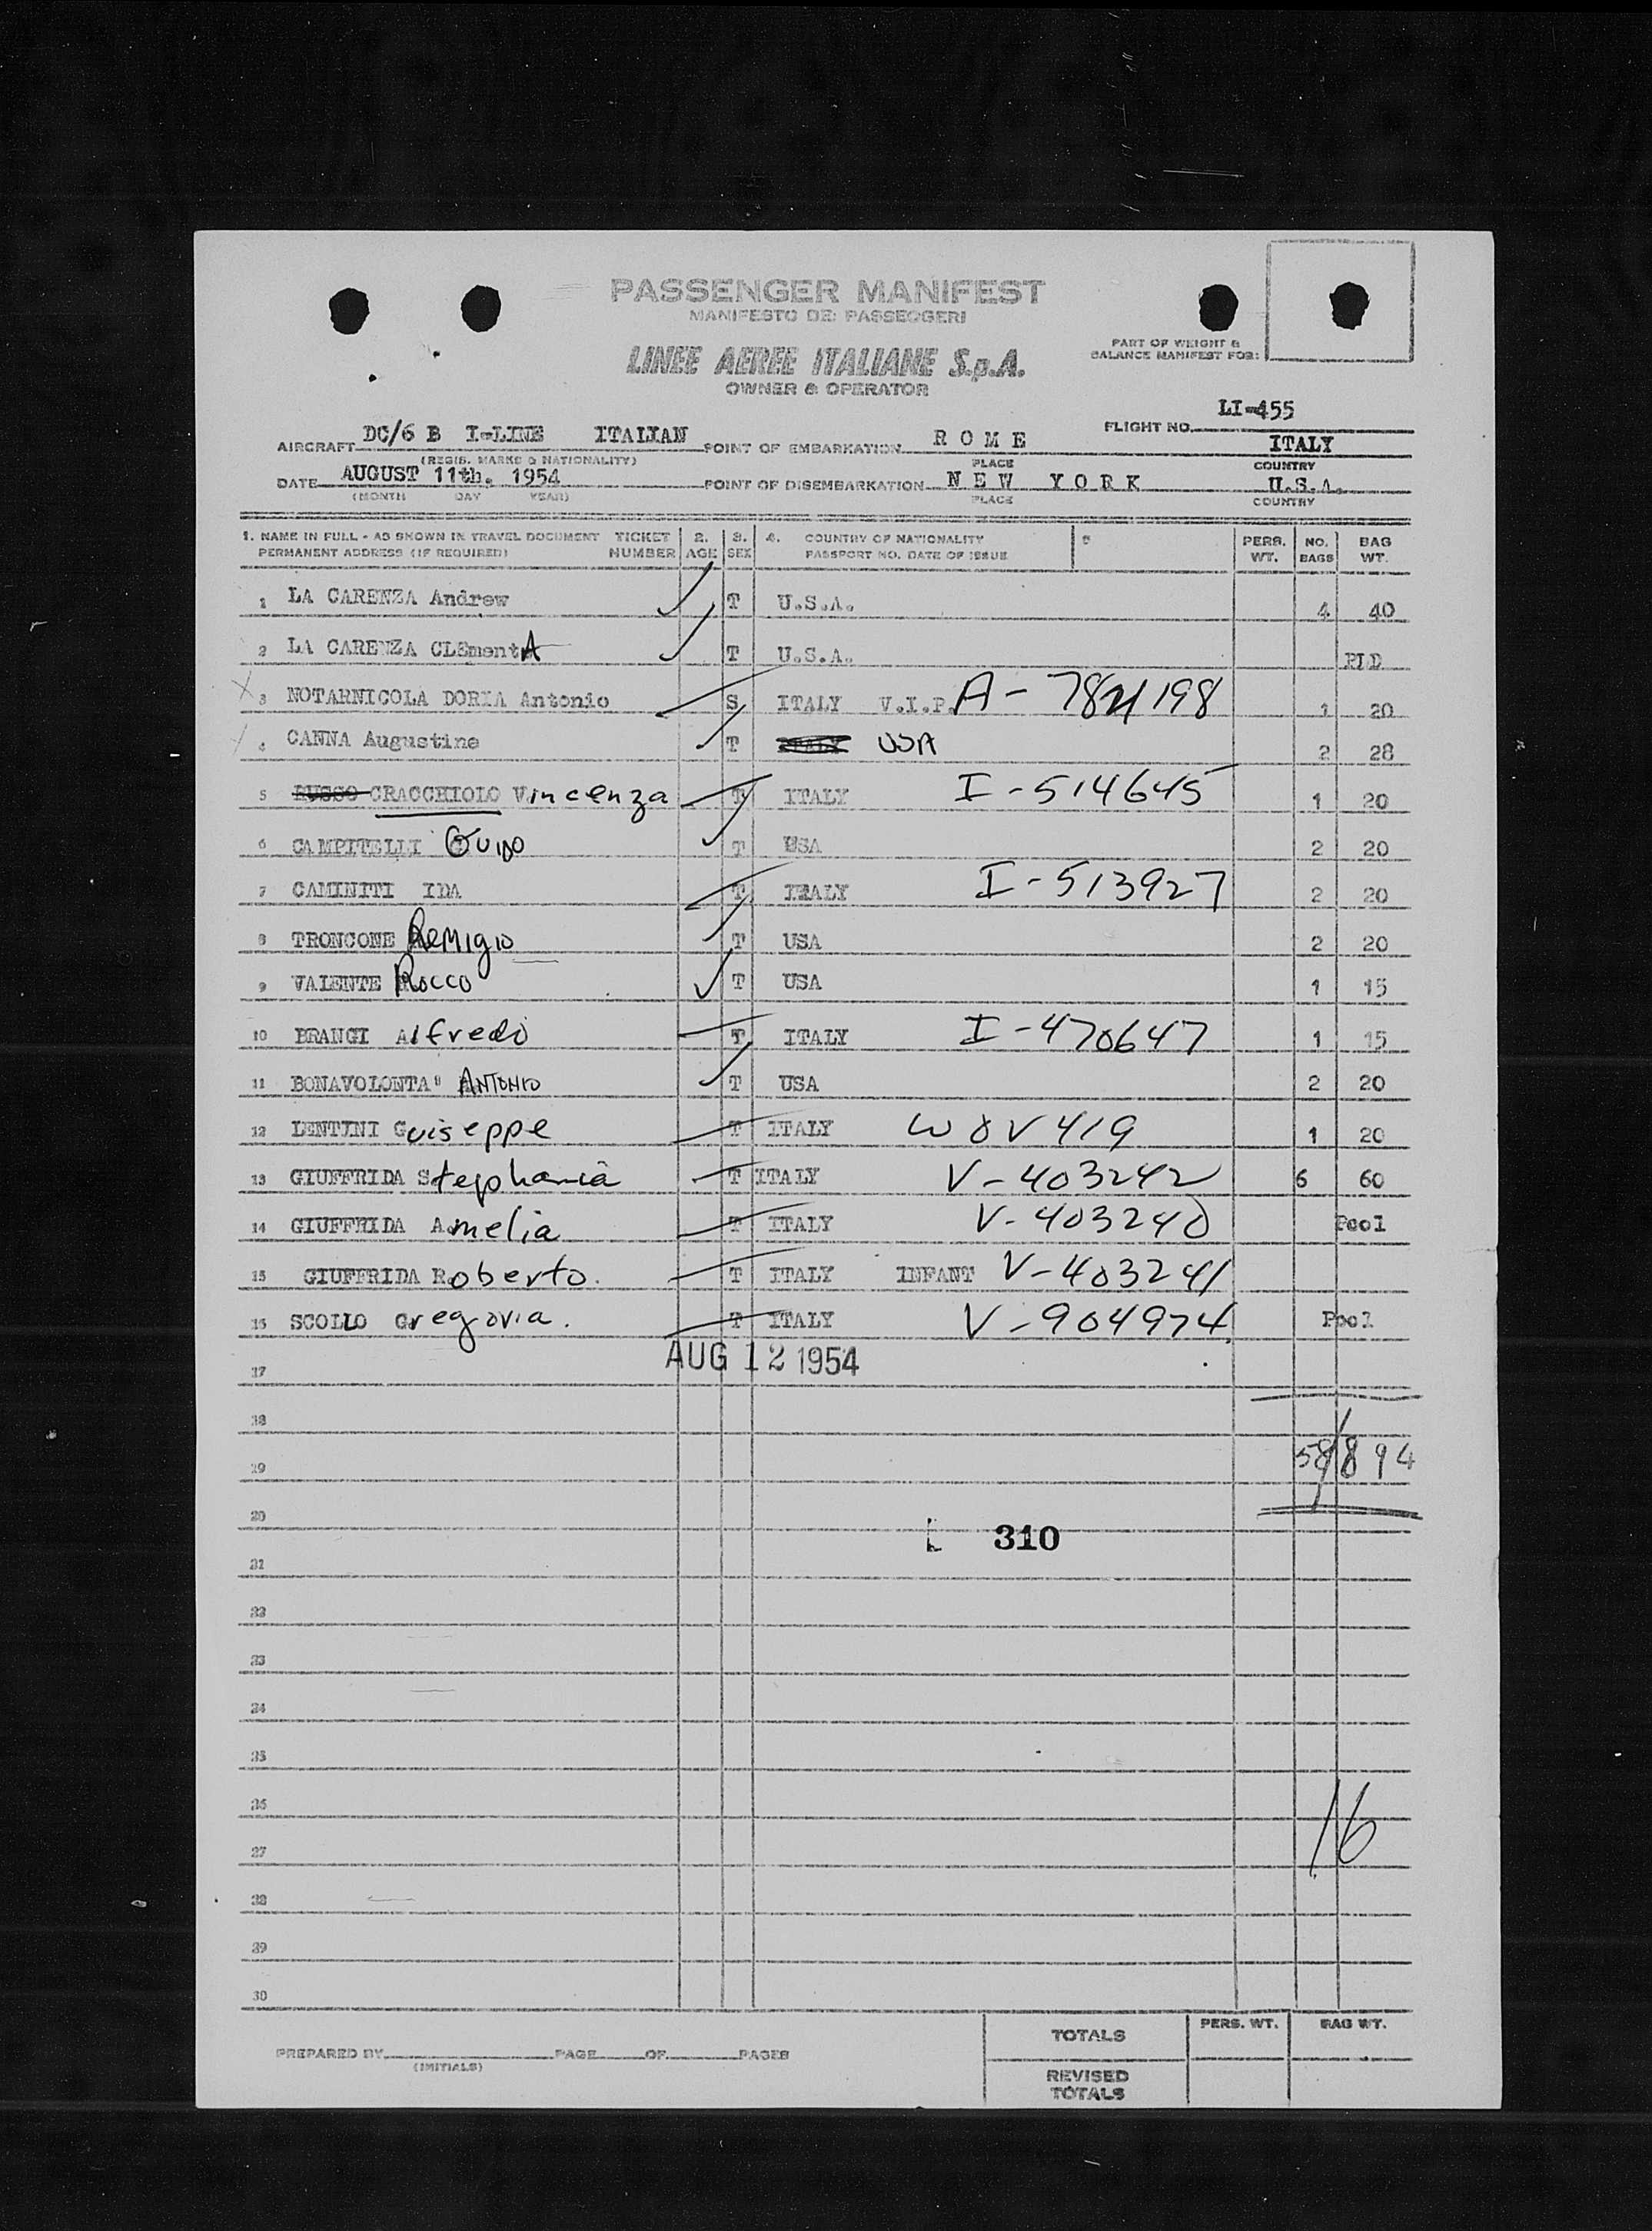 PASSENGER MANIFEST
MANIFESTO DEI PASSEGGERI
LINEE AEREE ITALIANE S.p.A.
OWNER & OPERATOR
PART OF WEIGHT &
BALANCE MANIFEST FOR:
FLIGHT NO. LI-455
AIRCRAFT DC/6 B I-LINE ITALIAN POINT OF EMBARKATION ROME ITALY
(REGIS. MARKS & NATIONALITY) PLACE COUNTRY
DATE AUGUST 11th. 1954 POINT OF DISEMBARKATION NEW YORK U.S.A.
(MONTH DAY YEAR) PLACE COUNTRY
1. NAME IN FULL - AS SHOWN IN TRAVEL DOCUMENT TICKET 2. 3. 4. COUNTRY OF NATIONALITY 5 PERS. NO. BAG
PERMANENT ADDRESS (IF REQUIRED) NUMBER AGE SEX PASSPORT NO. DATE OF ISSUE WT. BAGS WT.
1 LA CARENZA Andrew T U.S.A. 4 40
2 LA CARENZA CLEmentA T U.S.A. PLD
3 NOTARNICOLA DORIA Antonio S ITALY V.I.P. A-
4 CANNA Augustine T ITALY USA 2 28
5 RUSSO CRACCHIOLO Vincenza T ITALY I-514645 1 20
6 CAMPITELLI GUIDO T USA 2 20
7 CAMINITI IDA T ITALY I-513927 2 20
8 TRONCONE REMIGIO T USA 2 20
9 VALENTE Rocco T USA 1 15
10 BRANGI Alfredo T ITALY I-470647 1 15
11 BONAVOLONTA" ANTONIO T USA 2 20
12 LENTINI Guiseppe T ITALY 1 20
13 GIUFFRIDA Stephania T ITALY V-403242 6 60
14 GIUFFRIDA Amelia T ITALY V-403240 Pool
15 GIUFFRIDA Roberto. T ITALY INFANT V-403241
16 SCOLLO Gregoria. T ITALY V-904974 Pool
17 AUG 12 1954
18
19 58/894
20
L 310
21
22
23
24
25
26
16
27
28
29
30
TOTALS PERS. WT. BAG WT.
PREPARED BY PAGE OF PAGES
(INITIALS)
REVISED
TOTALS